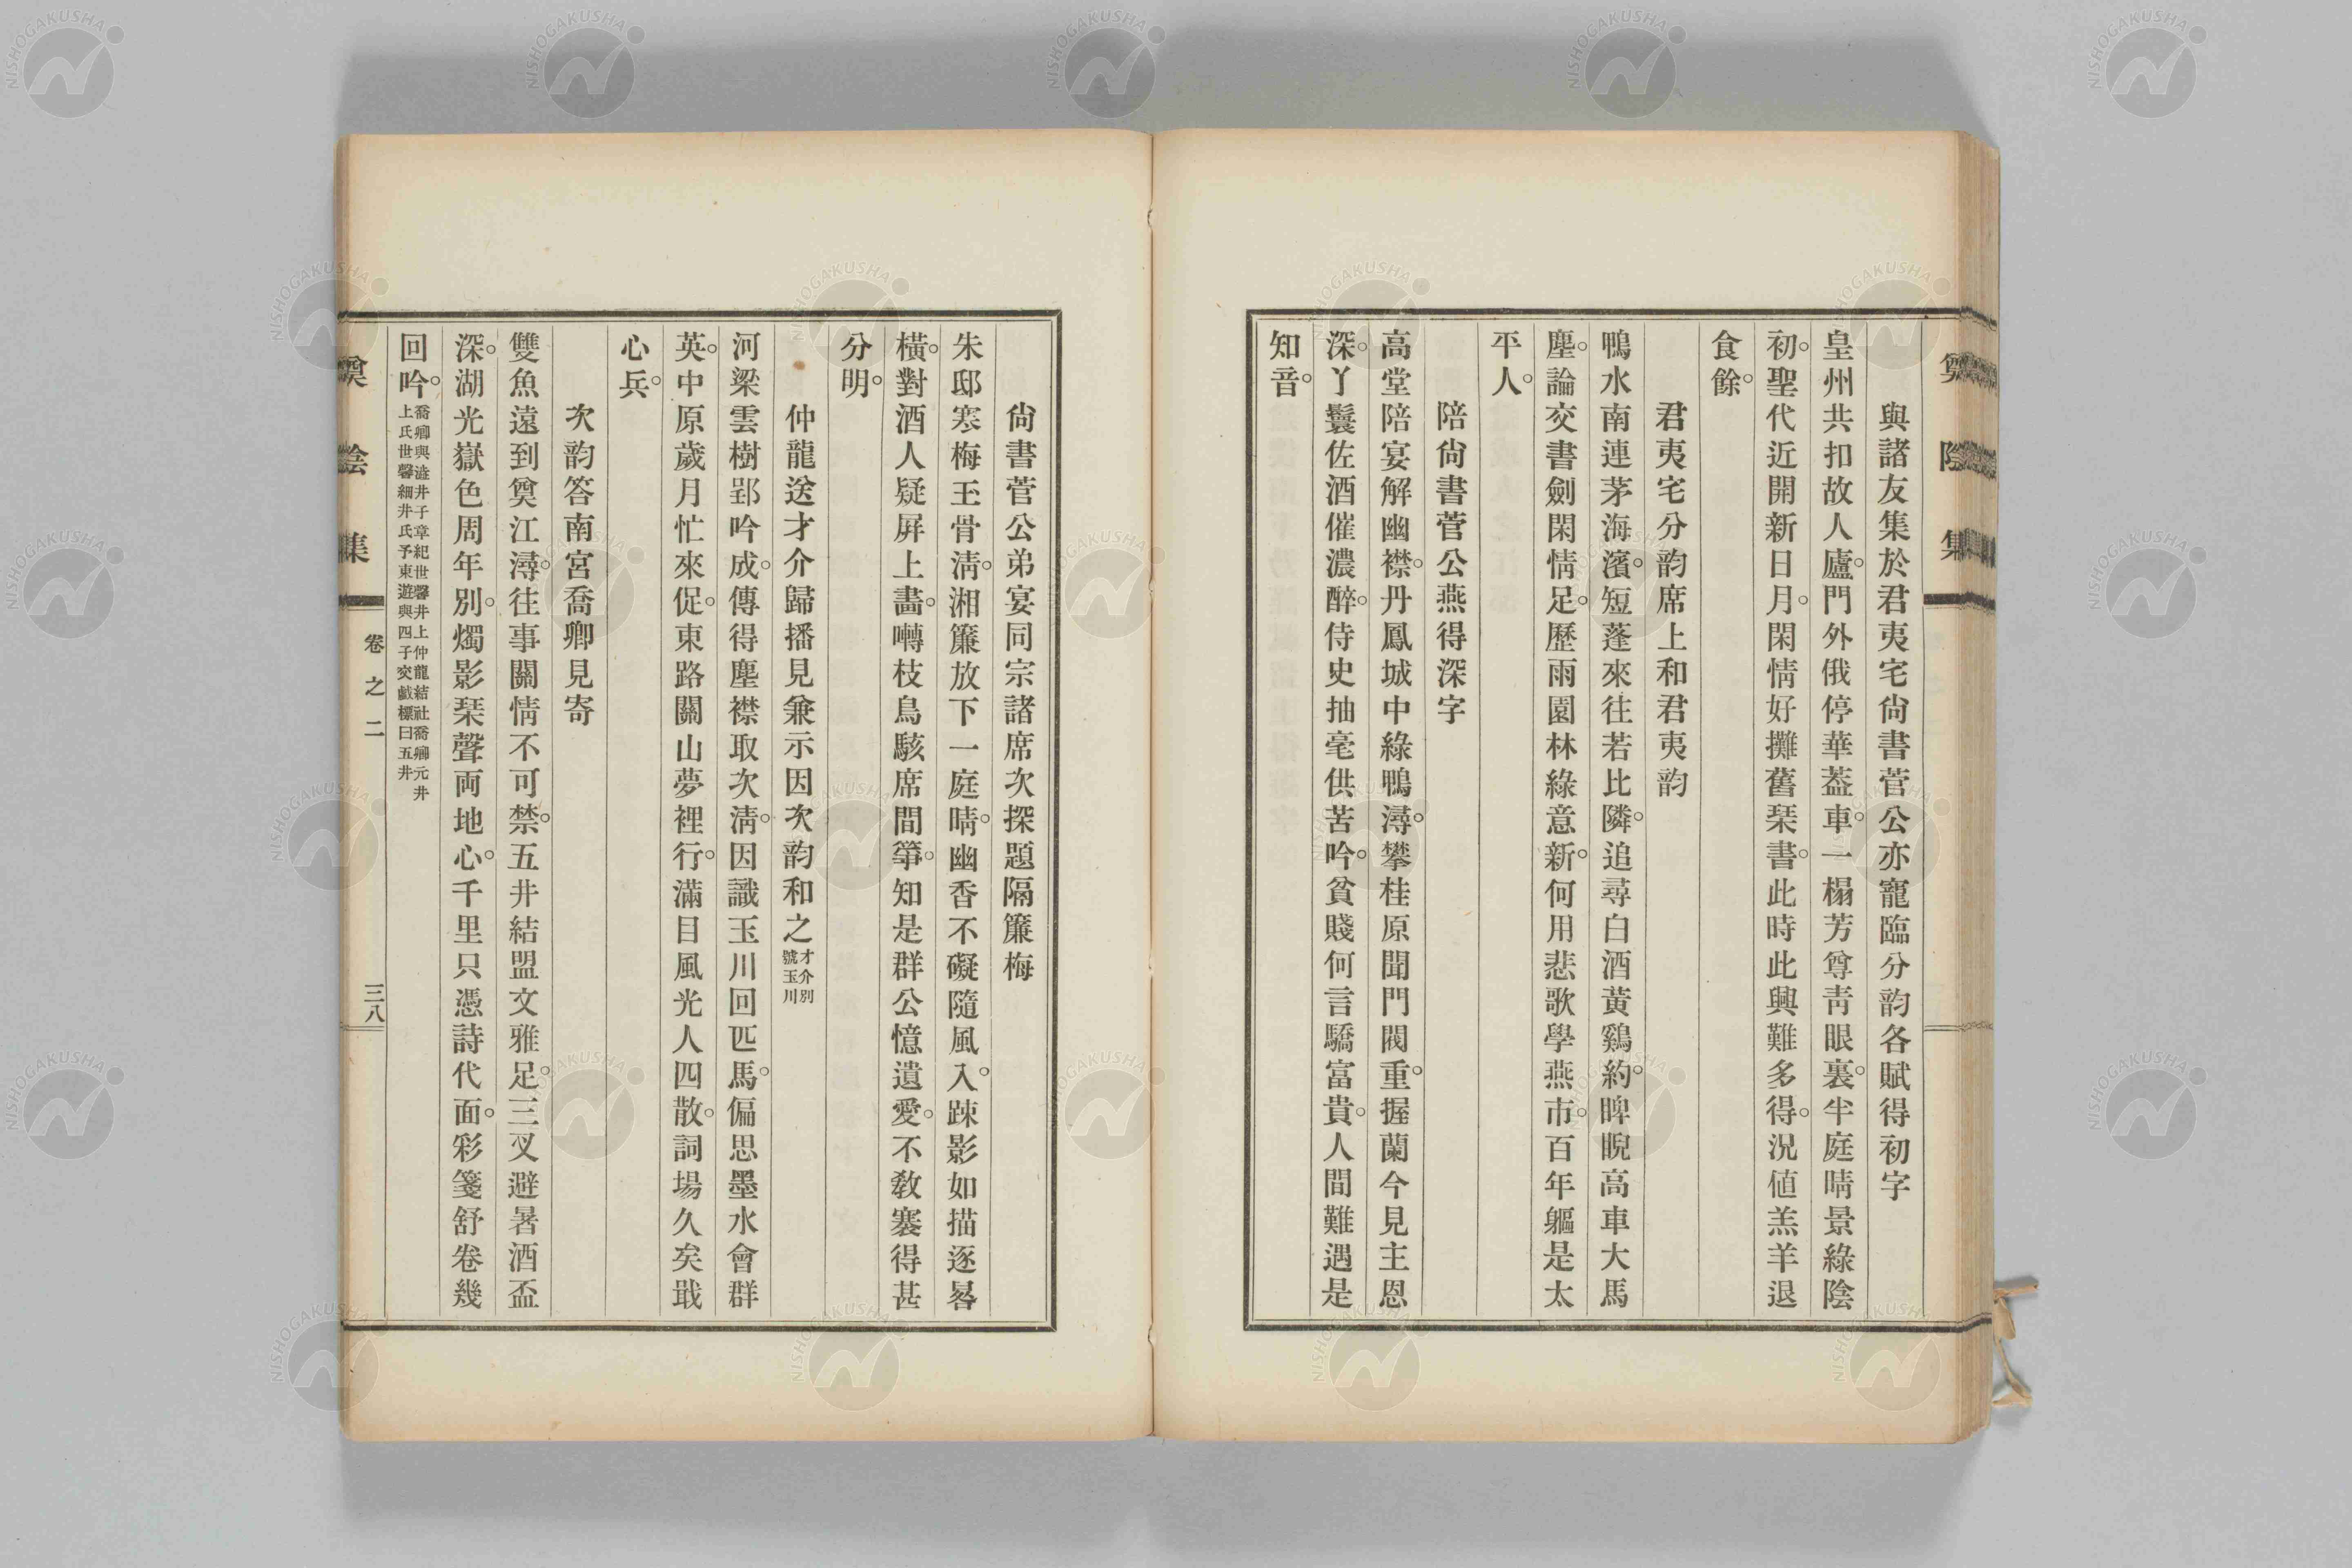 與諸友集於君夷宅尙書菅公亦寵臨分韵各賦得初字
皇州共扣故人廬。門外俄停華蓋車。一榻芳尊靑眼裏。半庭晴景綠陰
初。聖代近開新日月。閑情好攤舊琹書。此時此興難多得。況値羔羊退
食餘。
君夷宅分韵席上和君夷韵
鴨水南連茅海濱。短蓬來往若比隣。追尋白酒黃鷄約。睥睨高車大馬
塵。論交書劍閑情足。歷雨園林綠意新。何用悲歌學燕市。百年軀是太
平人。
陪尙書菅公燕得深字
高堂陪宴解幽襟。丹鳳城中綠鴨潯。攀桂原聞門閥重。握蘭今見主恩
深。丫鬟佐酒催濃醉。侍史抽毫供苦吟。貧賤何言驕富貴。人間難遇是
知音。
尙書菅公弟宴同宗諸席次探題隔簾梅
朱邸寒梅玉骨淸。湘簾放下一庭晴。幽香不礙隨風入。踈影如描逐晷
橫。對酒人疑屛上畵。囀枝鳥駭席間箏。知是群公憶遺愛。不敎褰得甚
分明。
仲龍送才介歸播見兼示因次韵和之才介別號玉川
河梁雲樹郢吟成。傳得塵襟取次淸。因識玉川回匹馬。偏思墨水會群
英。中原歲月忙來促。東路關山夢裡行。滿目風光人四散。詞場久矣戢
心兵。
次韵答南宮喬卿見寄
雙魚遠到奠江潯。往事關情不可禁。五井結盟文雅足。三叉避暑酒盃
深。湖光嶽色周年別。燭影琹聲両地心。千里只憑詩代面。彩箋舒卷幾
回吟。喬卿與澁井子章紀世馨井上仲龍結社喬卿元井上氏世馨細井氏予東遊與四子交戱標曰五井
陰集
卷之二
三八